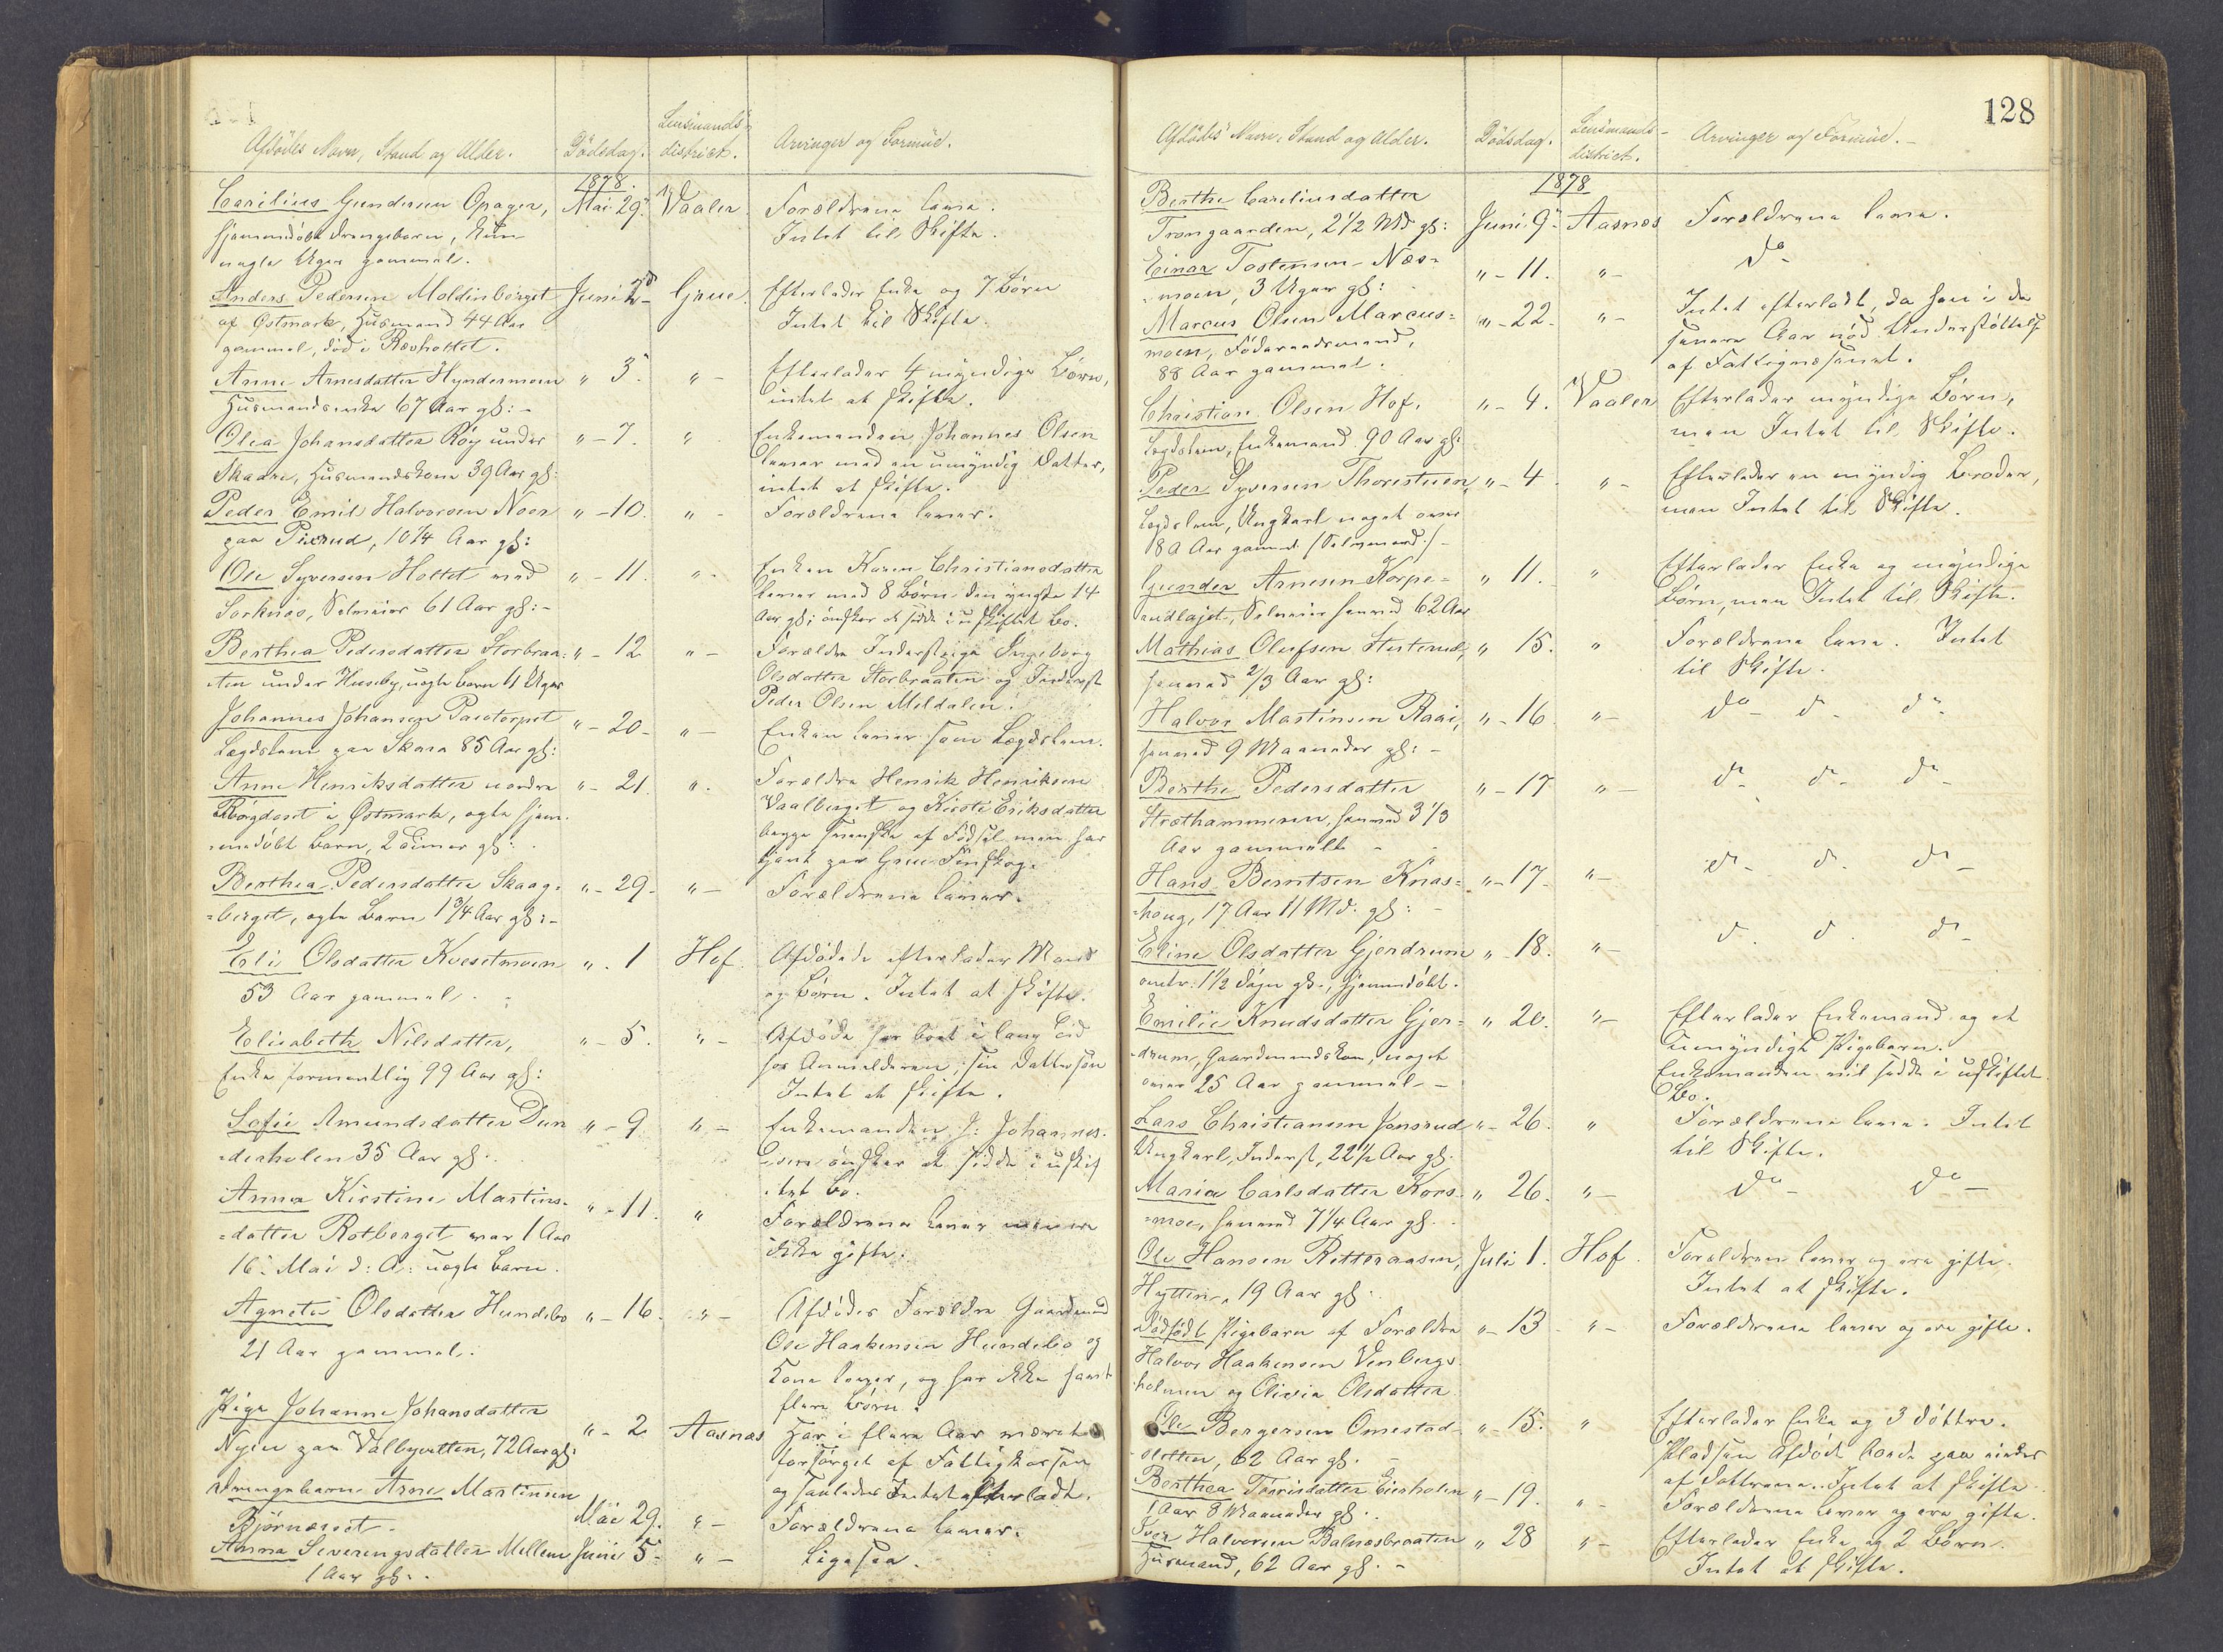 Afdödes Navn, Stand og Alder.
Dödsdag.
Lensmands-
district.
Arvinger og Formue.
1878.
Carilius Gundersen Opager,
hjemmedøbt Drengebarn, kun
nogle Uger gammel.
Mai 29.
Vaaler
Forældrene leve.
Intet til Skifte.
Anders Pedersen Moldinberget
af Østmark, Husmand 44 Aar
gammel, død i Revholtet.
Juni 2
Grue.
Efterlader Enke og 7 Børn
Intet til Skifte.
Anne Arnesdatter Hyndermoen
Husmandsenke 67 Aar gl: -
" 3.
" -
Efterlader 4 myndige Børn,
intet at skifte.
Olea Johansdatter Röy under
Skaare, Husmandskone 39 Aar gl:
" - 7.
"
Enkemanden Johannes Olsen
lever med en umyndig Datter,
intet at skifte.
Peder Emil Halvorsen Noer
paa Pixrud, 10 1/4 Aar gl:
" - 10.
" -
Forældrene lever.
Ole Syversen Holtet ved
Sorknæs, Selveier 61 Aar gl: -
" - 11.
" -
Enken Karen Christiansdatter
lever med 8 Børn den yngste 14
Aar gl; ønsker at sidde i uskiftet Bo.
Berthea Pedersdatter Storbraa-
ten under Huseby, uægte Barn 11 Uger
" - 12
" -
Forældre Inderstpige Ingeborg
Olsdatter Storbraaten og Inderst
Peder Olsen Meldalen.
Johannes Johansen Pastorpet
Lægdslem paa Skara 85 Aar gl:
" - 20 -
" -
Enken lever som Lægdslem.
Anne Henriksdatter nordre
Röigdoset i Østmark, ægte hjem-
medøbt Barn, 2 Timer gl:
" - 21.
" .
Forældre Henrik Henriksen
Vaalberget og Kirsti Eriksdatter
begge svenske af Fødsel men har
tjent paa Grue Finskog.
Berthea Pedersdatter Skaag-
=berget, ægte Barn 1 3/4 Aar gl: -
" - 29 -
" -
Forældrene lever.
Eli Olsdatter Kvesetmoen
53 Aar gammel.
" . 1
Hof.
Afdødede efterlader Mand
og Børn. Intet at skifte.
Elisabeth Nilsdatter,
Enke formentlig 99 Aar gl:
" - 5.
" -
Afdøde har boet i lang Tid
hos Anmelderen, sin Dattersøn
Intet at skifte.
Sofie Amundsdatter Dun
-derholen 35 Aar gl.
" - 9
" -
Enkemanden J. Johannes-
sen ønsker at sidde i uskif
-tet Bo.
Anna Kirstine Martins-
=datter Rotberget var 1 Aar
16 Mai d: A: uægte Barn.
" - 11.
"
Forældrene lever men ere
ikke gifte.
Agnete Olsdatter Hundebo
21 Aar gammel.
" - 16.
" -
Afdødes Forældre Gaardmand
Ole Haakensen Hundebo og
Kone lever, og har ikke havt
flere Børn.
Pige Johanne Johansdatter
Nyen paa Valbysetten, 72 Aar gl:
" - 2
Aasnæs
Har i flere Aar været
forsørget af Fattigkassen
og saaledes Intet efterladt.
Drengebarn Arne Martinsen
Bjørneset.
Mai 29.
" -
Forældrene lever.
Anna Severengsdatter Mellem
1 Aar gl.
Juni 5 -
" -
Ligesaa.
128
Afdødes Navn, Stand og Alder.
Dödsdag.
Lensmands-
district.
Arvinger og Formue. -
1878
Berthe Careliusdatter
Trongaarden, 2 1/2 Md gl:
Juni 9
Aasnæs
Forældrene leve.
Einar Tostensen Næs-
-moen, 3 Uger gl:
" - 11.
" -
do
Marcus Olsen Marcus-
moen, Föderaadsmand,
88 Aar gammel.
" - 22.
" -
Intet efterladt, da han i de
senere Aar nød Understøttelse
af Fattigvæsenet.
Christian Olsen Hof,
Lægdslem, Enkemand 90 Aar gl.
" - 4.
Vaaler
Efterlader myndige Børn,
men Intet til Skifte.
Peder Syversen Thorestuen,
Lægdslem, Ungkarl noget over
80 Aar gammel. (Selvmord.)
" - 4
" -
Efterlader en myndig Broder,
men Intet til Skifte.
Gunder Arnesen Korpe-
rudlajet, Selveier henved 62 Aar
" 11.
"
Efterlader Enke og myndige
Børn, men Intet til Skifte.
Mathias Olufsen Husterud,
henved 2/3 Aar gl:
" 15.
"
Forældrene leve. Intet
til Skifte.
Halvor Martinsen Raai,
henved 9 Maaneder gl: -
" - 16
" -
do - do - do
Berthe Pedersdatter
Stræthammeren, henved 3 1/3
Aar gammelt -
" - 17
" -
do - do - do -
Hans Berntsen Knas-
-houg, 17 Aar 11 Md. gl: -
" - 17.
" -
do - do - do -
Eline Olsdatter Gjerdrum
omtr. 1 1/2 Døgn gl., hjemmedøbt.
" - 18.
" -
do . do . do -
Emilie Knudsdatter Gjer-
-drum, Gaardmandskone, noget
over 25 Aar gammel -
" 20.
" -
Efterlader Enkemand og et
umyndigt Pigebarn.
Enkemanden vil sidde i uskiftet
Bo.
Lars Christiansen Jonsrud
Ungkarl, Inderst, 22 1/2 Aar gl.
" - 26.
"
Forældrene leve. Intet
til Skifte.
Maria Carlsdatter Kors-
=moe, henved 7 1/4 Aar gl.
" 26.
" -
do - do -
Ole Hansen Rotteraasen,
Hytten, 19 Aar gl.
Juli 1.
Hof.
Forældrene lever og ere gifte.
Intet at skifte.
Dödfödt Pigebarn af Forældre
Halvor Haakensen Venbergs-
holmen og Olivia Olsdatter
" - 13
" -
Forældrene lever og ere gifte.
Ole Bergersen Omestad-
sletten, 62 Aar gl. -
" - 15.
"
Efterlader Enke og 3 Døttre.
Pladsen Afdøde boede paa eies
af Døttrene. Intet at skifte.
Berthea Torrisdatter Eidsholen
1 Aar 8 Maaneder gl.
" - 19.
" -
Forældrene lever og ere gifte.
Iver Halvorsen Balnæsbraaten
Husmand, 62 Aar gl. -
" 28
" -
Efterlader Enke og 2 Børn.
Intet at skifte.